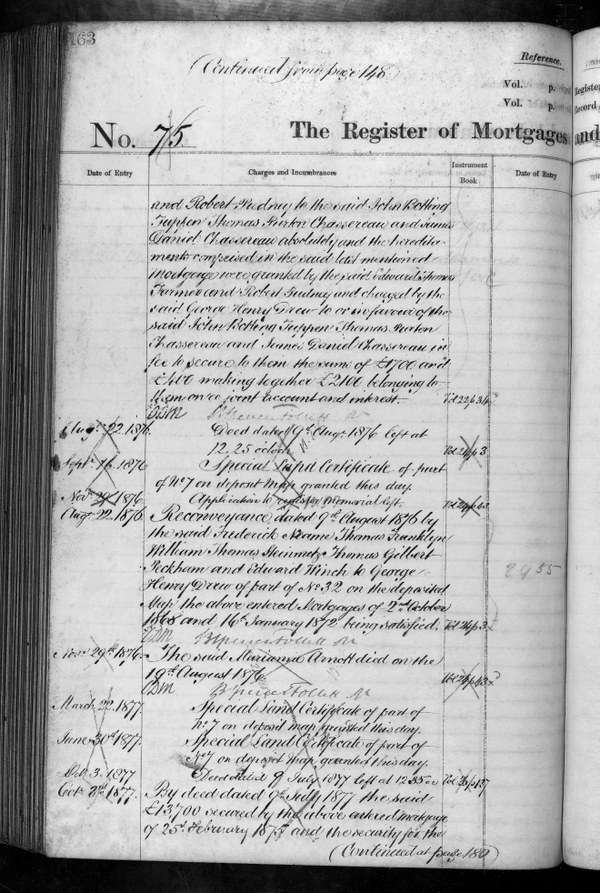 163
(Continued from page 148)
Reference.
Vol. p.
Vol. p.
No. 715
The Register of Mortgages and
Date of Entry
Charges and Incumbrances
Instrument Book
Date of Entry
and Robert Pudney to the said John Botting
Tuppen Thomas Burton Chassereau and James
Daniel Chassereau absolutely and the heredita-
ments comprised in the said last mentioned
mortgage were granted by the said Edward Thomas
Farmer and Robert Pudney and charged by the
said George Henry Drew to or in favour of the
said John Botting Tuppen Thomas Burton
Chassereau and James Daniel Chassereau in
fee to secure to them the sums of £1700 and
£400 making together £2100 belonging to
them on a joint account and interest.
Augt. 22. 1876. Deed dated 9th Augt. 1876 left at
12.25 o'clock
Septr. 16. 1876 Special Land Certificate of part
of No. 7 on deposit map granted this day.
Novr. 1876 Application to register memorial left.
Augt. 22. 1876 Reconveyance dated 9th August 1876 by
the said Frederick Thomas Franklyn
William Thomas Thomas Gilbert
Peckham and Edward Winch to George
Henry Drew of part of No. 32 on the deposited
Map the above entered Mortgages of 2nd October
1868 and 16th January 1872 being satisfied.
Novr. 29th 1876. The said Marianne Arnott died on the
19th August 1876
March 22. 1877 Special Land Certificate of part of
No. 7 on deposit map granted this day.
June 30th 1877. Special Land Certificate of part of
No. 7 on deposit map granted this day.
Oct. 3. 1877 Deed dated 9 July 1877 left at 12.35
Octr. 3rd 1877. By deed dated 9th July 1877 the said
£13,700 secured by the above entered mortgage
of 25th February 1875 and the security for the
(Continued at page 180)